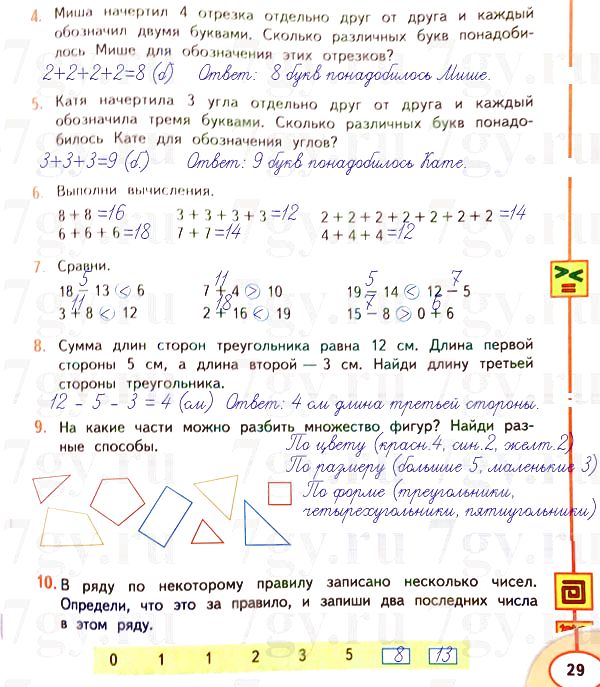 4. Миша начертил 4 отрезка отдельно друг от друга и каждый
обозначил двумя буквами. Сколько различных букв понадоби-
лось Мише для обозначения этих отрезков?
2+2+2+2=8 (б) Ответ: 8 букв понадобилось Мише.
5. Катя начертила 3 угла отдельно друг от друга и каждый
обозначила тремя буквами. Сколько различных букв понадо-
билось Кате для обозначения углов?
3+3+3=9 (б.) Ответ: 9 букв понадобилось Кате.
6. Выполни вычисления.
8 + 8 =16 3 + 3 + 3 + 3 =12 2 + 2 + 2 + 2 + 2 + 2 + 2 =14
6 + 6 + 6 =18 7 + 7 =14 4 + 4 + 4 =12
7. Сравни.
5 11 5 7
18 − 13 < 6 7 + 4 > 10 19 − 14 < 12 − 5
11 18 7 6
3 + 8 < 12 2 + 16 < 19 15 − 8 > 0 + 6
> < =
8. Сумма длин сторон треугольника равна 12 см. Длина первой
стороны 5 см, а длина второй — 3 см. Найди длину третьей
стороны треугольника.
12 - 5 - 3 = 4 (см) Ответ: 4 см длина третьей стороны.
9. На какие части можно разбить множество фигур? Найди раз-
ные способы.
По цвету (красн.4, син.2, желт.2)
По размеру (большие 5, маленькие 3)
По форме (треугольники,
четырехугольники, пятиугольники)
10. В ряду по некоторому правилу записано несколько чисел.
Определи, что это за правило, и запиши два последних числа
в этом ряду.
0 1 1 2 3 5 8 13
29
7gy.ru